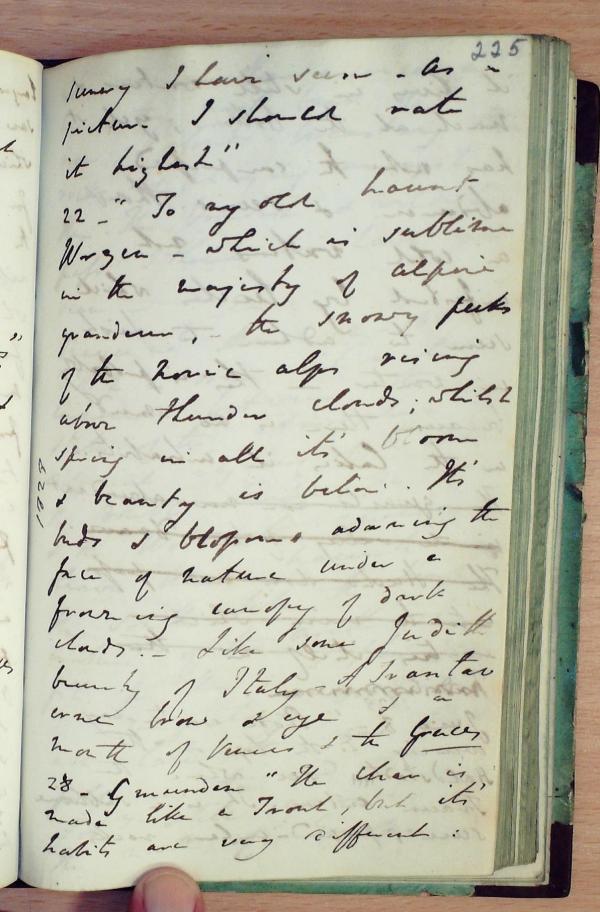 225
I have seen - as a
picture I should rate
it highest"
22 - "To my old haunt
Wurzen - which is sublime
in the majesty of alpine
grandeur, - the snowy peeks
of the noric alps rising
above thunder clouds; whilst
spring in all its' bloom
& beauty is below. It's
buds & blossoms adorning the
face of nature under a
frowning canopy of dark
clouds. - Like some Judith
beauty of Italy - A
brow & eye & a
mouth of Venus & the Graces
28 - Gmunden "The char is
made like a Trout, but its'
habits are very different:
1828